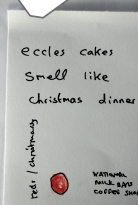 eccles cakes
smell like
christmas dinner
red! / christmassy
NATIONAL
MILK BARS
COFFEE SHOP